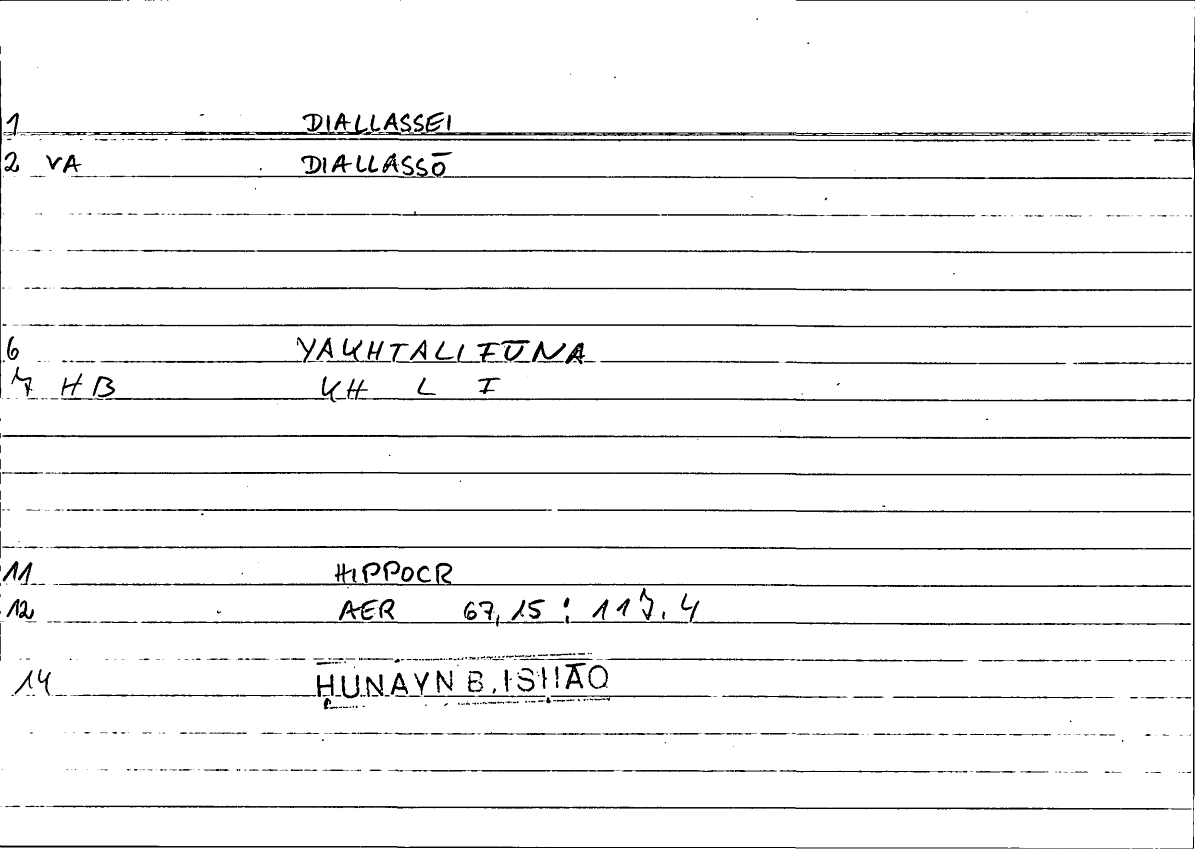 1 DIALLASSEI
2 VA DIALLASSŌ
6 YAKHTALIFŪNA
7 HB KH L F
11 HIPPOCR
12 AER 67,15 : 117.4
14 ḤUNAYN B. ISḤĀQ